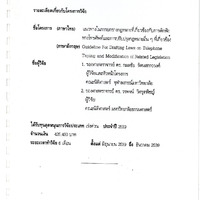 รายละเอียดเกี่ยวกับโครงการวิจัย
ชื่อโครงการ (ภาษาไทย) แนวทางในการยกร่างกฎหมายที่เกี่ยวข้องกับการดักฟัง
ทางโทรศัพท์และการปรับปรุงกฎหมายอื่น ๆ ที่เกี่ยวข้อง
(ภาษาอังกฤษ) Guideline For Drafting Laws on Telephone
Taping and Modification of Related Legislation
ชื่อผู้วิจัย 1. รองศาสตราจารย์ ดร.
ผู้วิจัยและหัวหน้าโครงการ
คณะนิติศาสตร์ จุฬาลงกรณ์มหาวิทยาลัย
2. รองศาสตราจารย์ ดร.
ผู้วิจัย
คณะนิติศาสตร์ มหาวิทยาลัยธรรมศาสตร์
ได้รับทุนอุดหนุนการวิจัยประเภท ประจำปี 2539
จำนวนเงิน บาท
ระยะเวลาทำวิจัย 6 เดือน ตั้งแต่ มิถุนายน 2539 ถึง ธันวาคม 2539